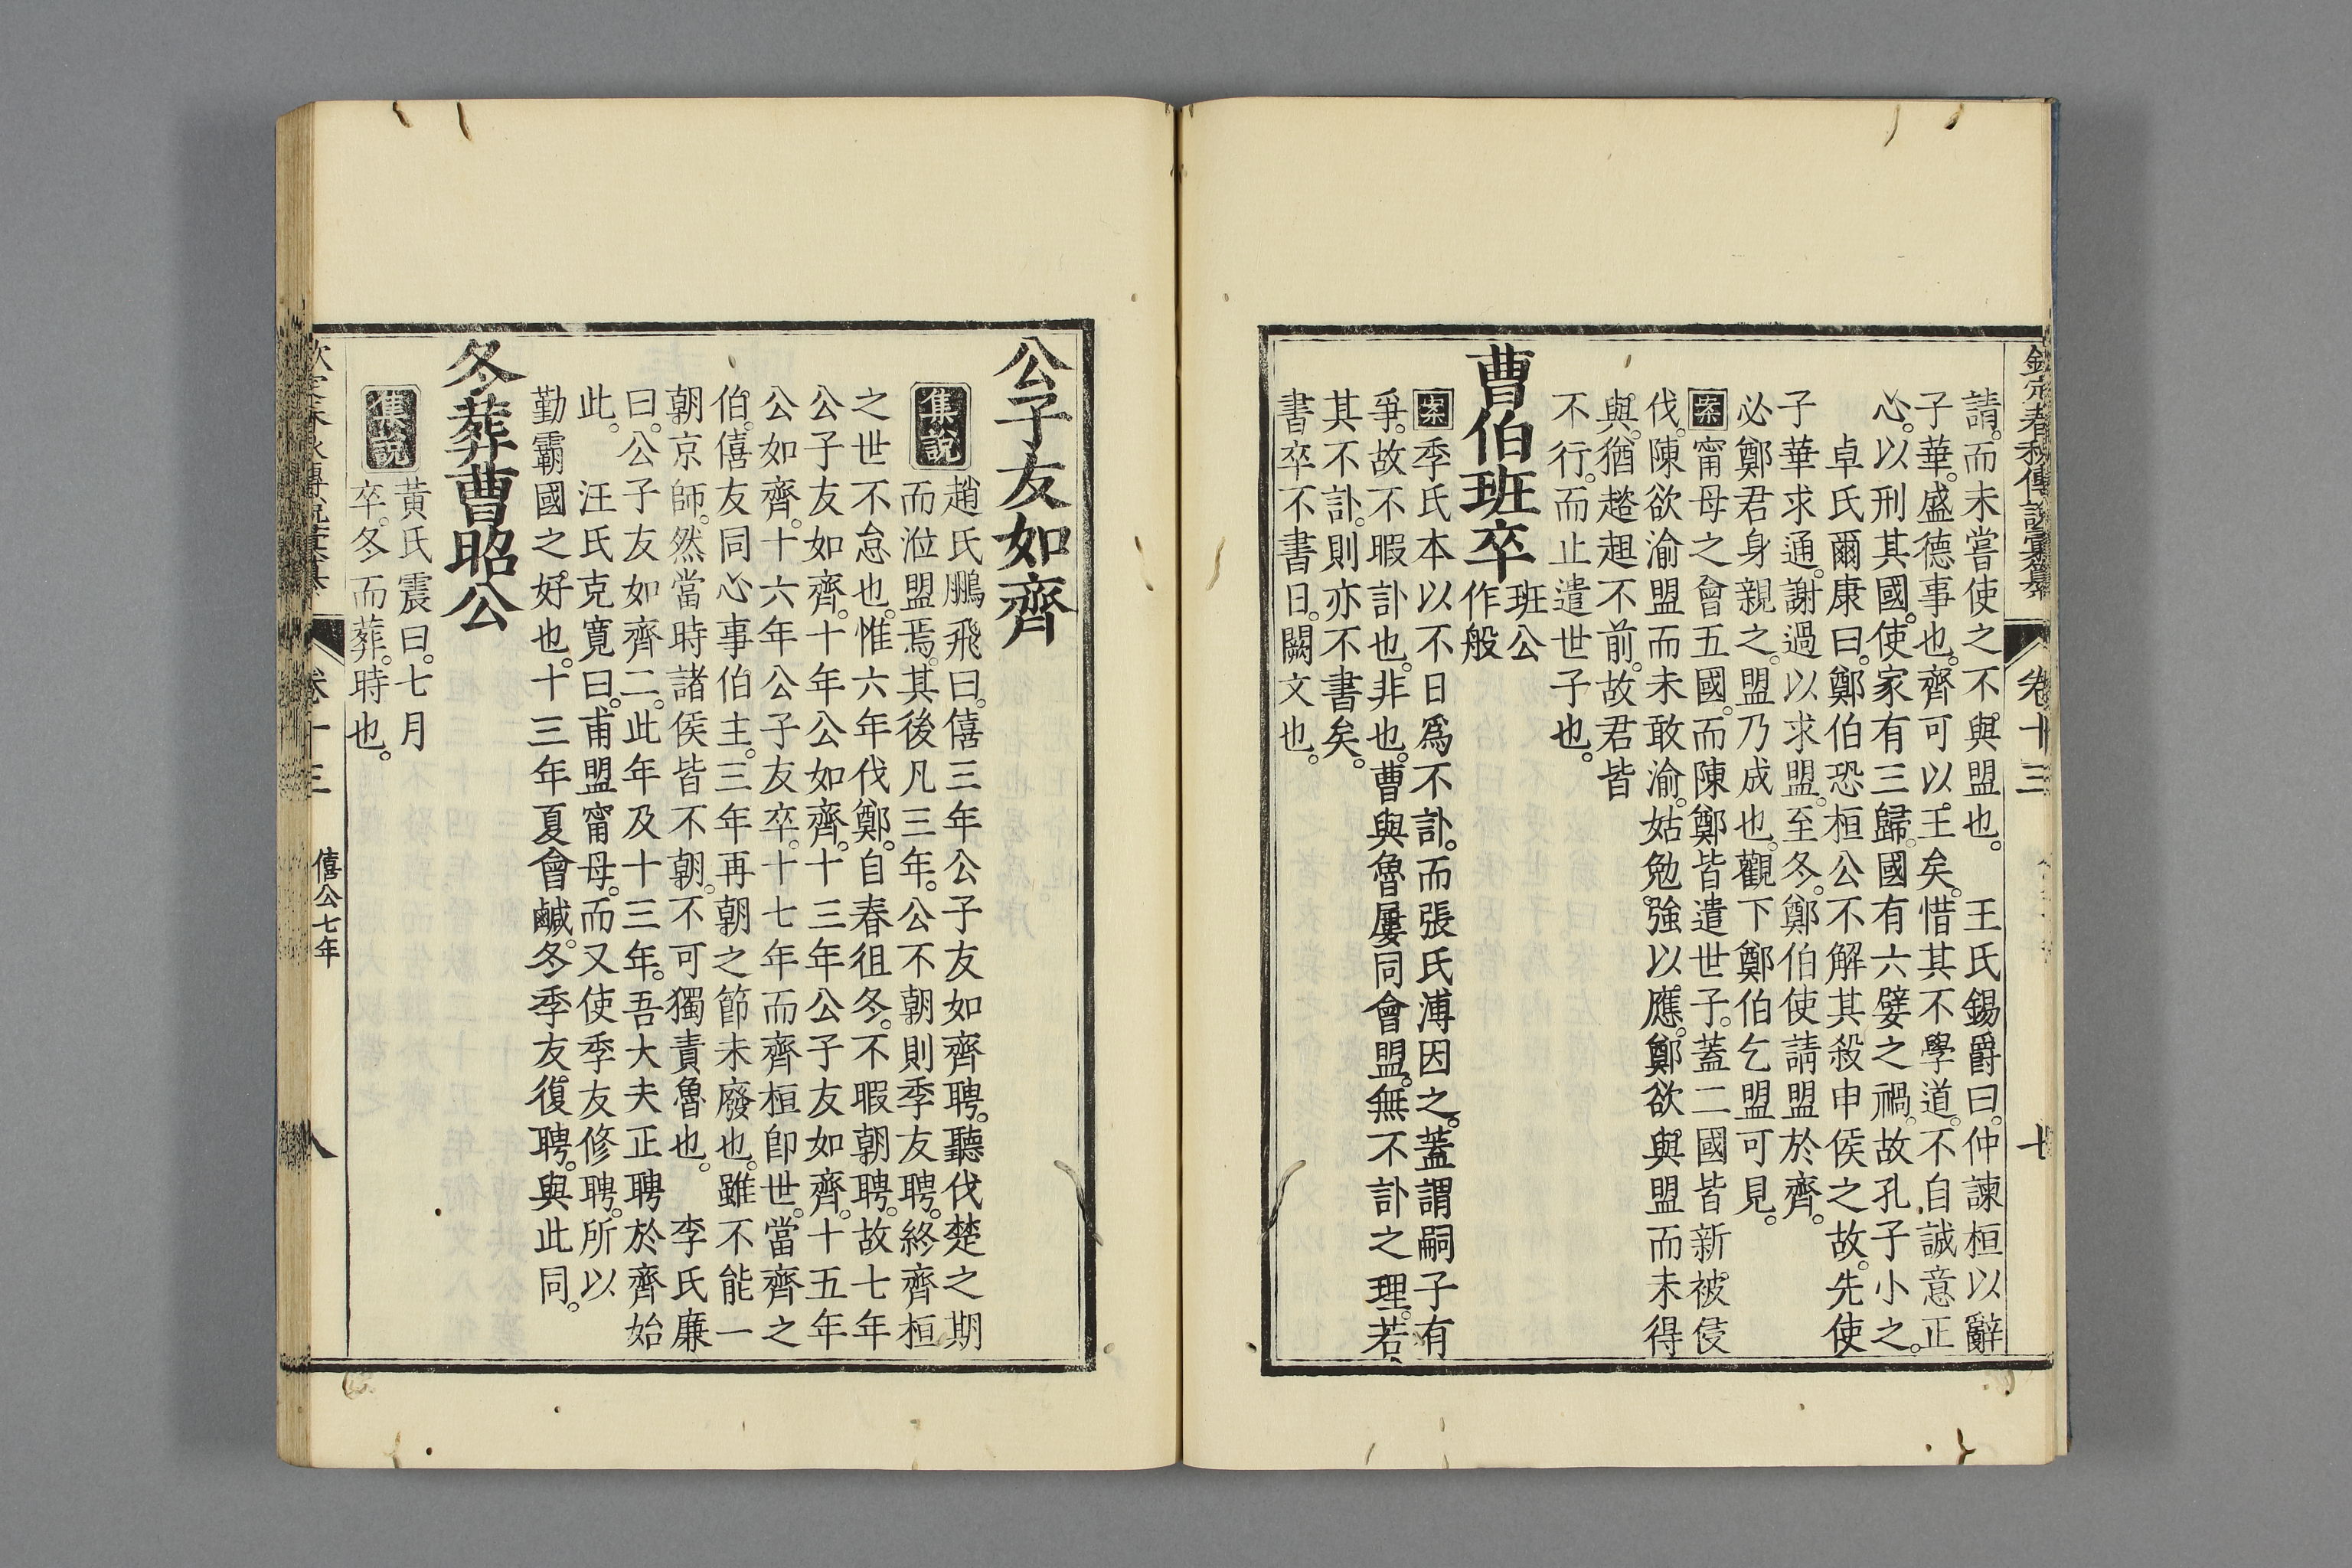 欽定春秋傳說彙纂 卷十三
請。而未嘗使之不與盟也。 王氏錫爵曰。仲諫桓以辭
子華。盛德事也。齊可以王矣。惜其不學道。不自誠意正
心。以刑其國。使家有三歸。國有六嬖之禍。故孔子小之。
卓氏爾康曰。鄭伯恐桓公不解其殺申侯之故。先使
子華求通。謝過以求盟。至冬。鄭伯使請盟於齊。
必鄭君身親之。盟乃成也。觀下鄭伯乞盟可見。
案甯母之會五國。而陳鄭皆遣世子。蓋二國皆新被侵
伐。陳欲渝盟而未敢渝。姑勉強以應。鄭欲與盟而未得
與。猶趑趄不前。故君皆
不行。而止遣世子也。
曹伯班卒 班公
作般
案季氏本以不日爲不訃。而張氏溥因之。蓋謂嗣子有
爭。故不暇訃也。非也。曹與魯屢同會盟。無不訃之理。若
其不訃。則亦不書矣。
書卒不書日。闕文也。
公子友如齊
集說 趙氏鵬飛曰。僖三年公子友如齊聘。聽伐楚之期
而涖盟焉。其後凡三年。公不朝則季友聘。終齊桓
之世不怠也。惟六年伐鄭。自春徂冬。不暇朝聘。故七年
公子友如齊。十年公如齊。十三年公子友如齊。十五年
公如齊。十六年公子友卒。十七年而齊桓卽世。當齊之
伯。僖友同心事伯主。三年再朝之節未廢也。雖不能一
朝京師。然當時諸侯皆不朝。不可獨責魯也。 李氏廉
曰。公子友如齊二。此年及十三年。吾大夫正聘於齊始
此。 汪氏克寬曰。甫盟甯母。而又使季友修聘。所以
勤霸國之好也。十三年夏會鹹。冬季友復聘。與此同。
冬葬曹昭公
集說 黃氏震曰。七月
卒。冬而葬。時也。
卷十三 僖公七年 八